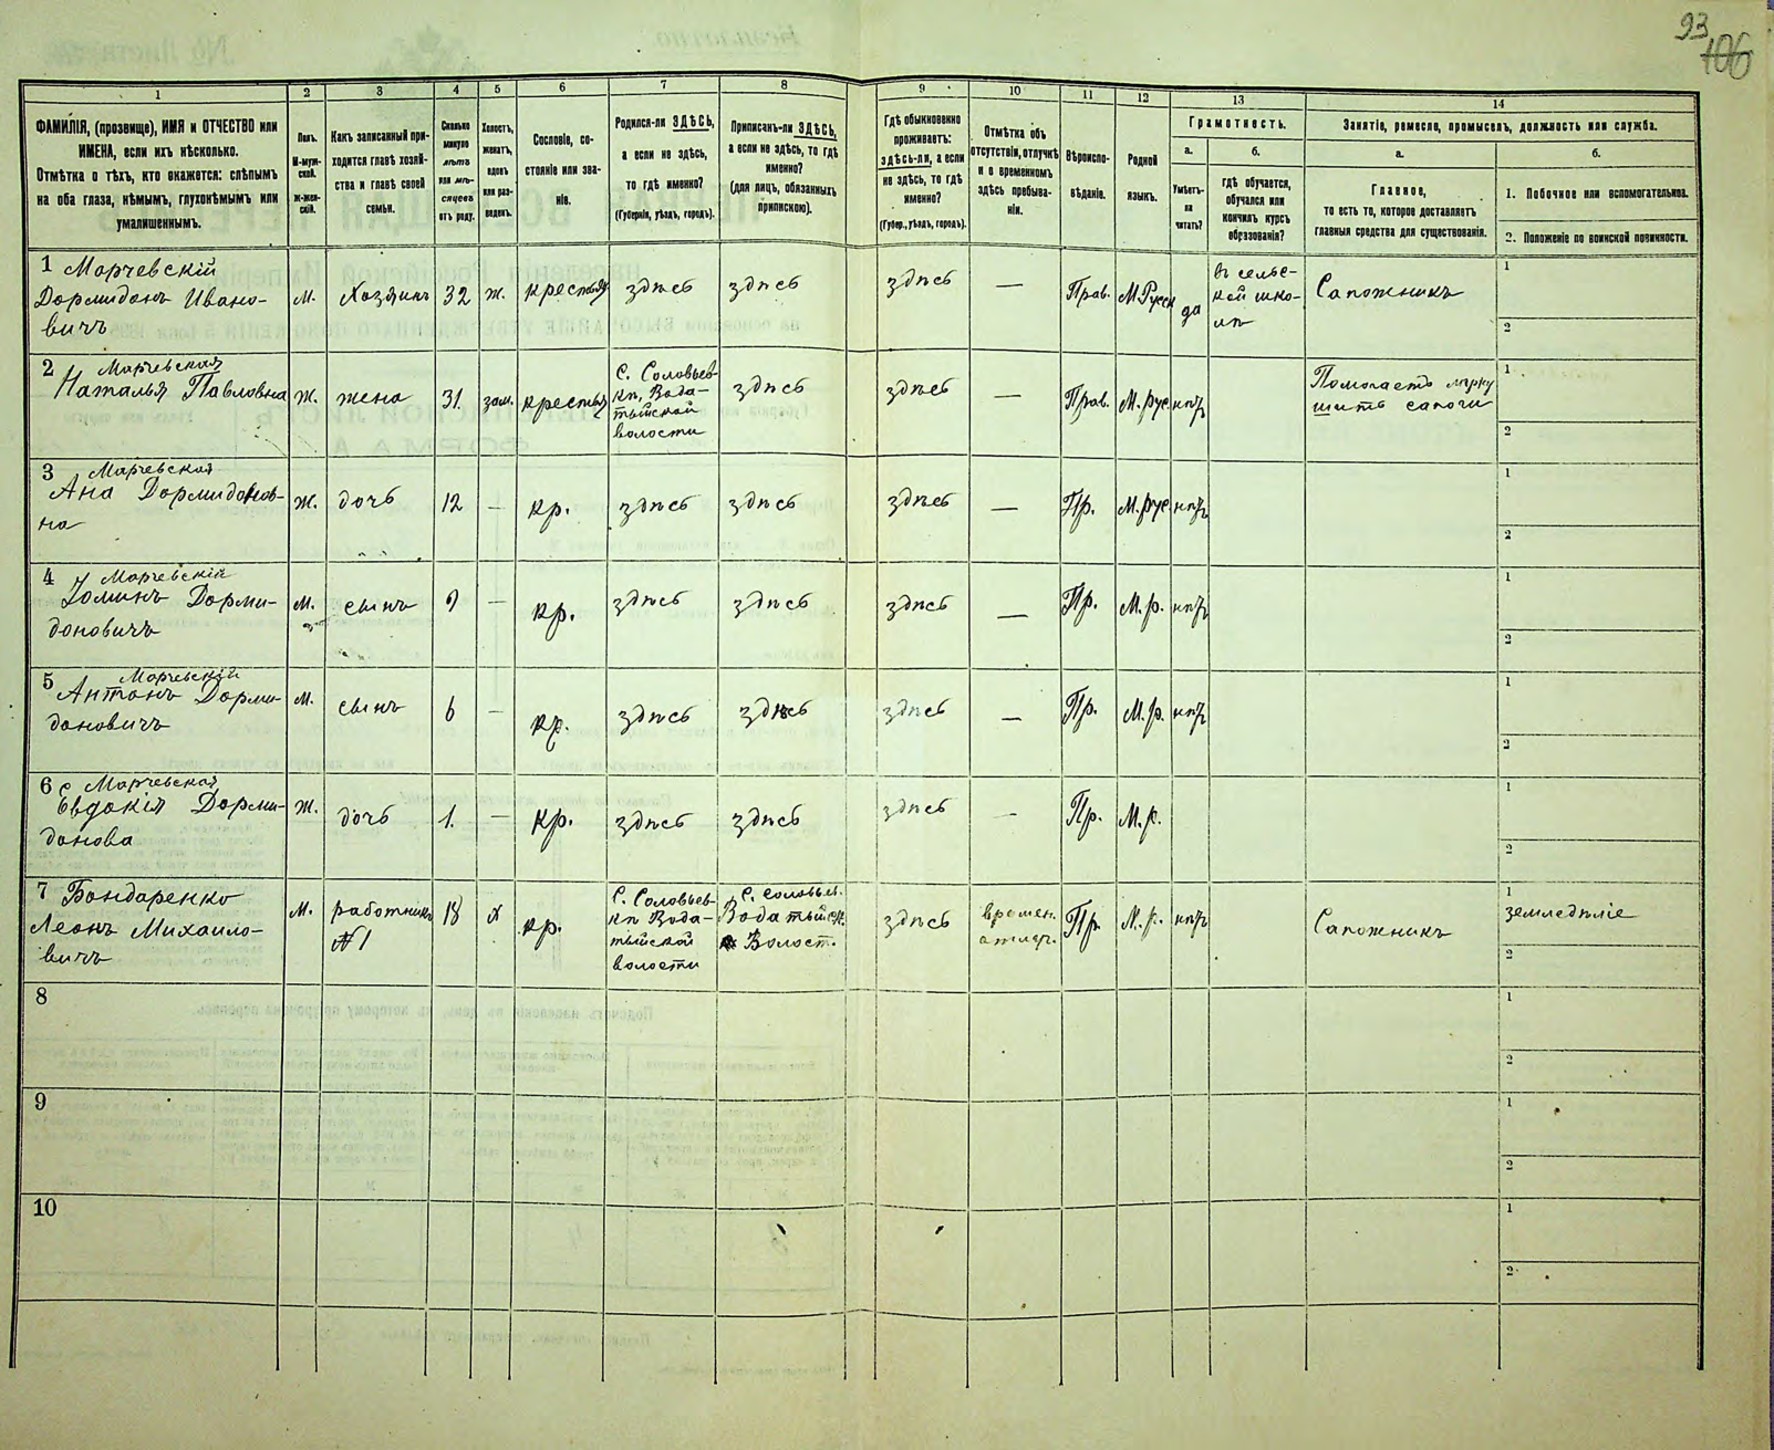 93
106
1
2
3
4
5
6
7
8
9
10
11
12
13
14
ФАМИЛІЯ, (прозвище), ИМЯ и ОТЧЕСТВО или
ИМЕНА, если ихъ нѣсколько.
Отмѣтка о тѣхъ, кто окажется: слѣпымъ
на оба глаза, нѣмымъ, глухонѣмымъ или
умалишеннымъ.
Полъ.
М-муж-
ской.
Ж-жен-
скій.
Какъ записанный при-
ходится главѣ хозяй-
ства и главѣ своей
семьи.
Сколько
минуло
лѣтъ
или мѣ-
сяцевъ
отъ роду.
Холостъ,
женатъ,
вдовъ
или раз-
веденъ.
Сословіе, со-
стояніе или зва-
ніе.
Родился-ли ЗДѢСЬ,
а если не здѣсь,
то гдѣ именно?
(Губернія, уѣздъ, городъ).
Приписанъ-ли ЗДѢСЬ,
а если не здѣсь, то гдѣ
именно?
(для лицъ, обязанныхъ
припискою).
Гдѣ обыкновенно
проживаетъ:
здѣсь-ли, а если
не здѣсь, то гдѣ
именно?
(Губер., уѣздъ, городъ).
Отмѣтка объ
отсутствіи, отлучкѣ
и о временномъ
здѣсь пребыва-
ніи.
Вѣроиспо-
вѣданіе.
Родной
языкъ.
Грамотность.
а.
Умѣетъ-
ли
читать?
б.
гдѣ обучается,
обучался или
кончилъ курсъ
образованія?
Занятіе, ремесло, промыселъ, должность или служба.
а.
Главное,
то есть то, которое доставляетъ
главныя средства для существованія.
б.
1. Побочное или вспомогательное.
2. Положеніе по воинской повинности.
1 Марчевскій
Дормидонъ Ивано-
вичъ
м. Хозяинъ 32 ж. крестья здѣсь здѣсь здѣсь — Прав. М.Русск да
въ сельс-
кой шко-
лѣ
Сапожникъ
1
2
2 Марчевская
Наталья Павловна
ж. жена 31. зам. крестья
С. Соловьев-
кѣ, Вода-
тыйской
волости
здѣсь здѣсь — Прав. М.рус. нѣтъ
Помогаетъ мужу
шить сапоги
1
2
3 Марчевская
Ана Дормидонов-
на
ж. дочь 12 — кр. здѣсь здѣсь здѣсь — Пр. М.рус. нѣтъ
1
2
4 Марчевскій
Фоминъ Дорми-
доновичъ
м. сынъ 9 — кр. здѣсь здѣсь здѣсь — Пр. М.р. нѣтъ
1
2
5 Марчевскій
Антонъ Дорми-
доновичъ
м. сынъ 6 — кр. здѣсь здѣсь здѣсь — Пр. М.р. нѣтъ
1
2
6 Марчевская
Евдокія Дорми-
донова
ж. дочь 1. — кр. здѣсь здѣсь здѣсь — Пр. М.р.
1
2
7 Бондаренко
Леонъ Михаило-
вичъ
м. работникъ
№1
18 х кр.
С. Соловьев-
кѣ Вода-
тыйской
волости
С. Соловьев.
Водатыйск.
Волост.
здѣсь
времен.
отлуч.
Пр. М.р. нѣтъ
Сапожникъ
1
земледѣліе
2
8
1
2
9
1
2
10
1
2